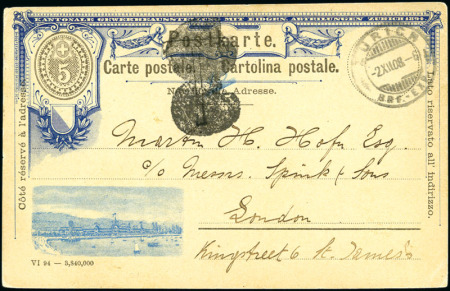 KANTONALE GEWERBEAUSSTELLUNG MIT EIDGEN. ABTEILUNGEN ZÜRICH 1894
Postkarte.
Carte postale. Cartolina postale.
Adresse.
5
-2.XII.08.-6
Côté réservé à l'adresse.
Lato riservato all' indirizzo.
Martin H. Hofn Esq.
c/o Messrs. Spink & Sons
London
Kingstreet 6 St. James's
VI 94 — 5,840,000